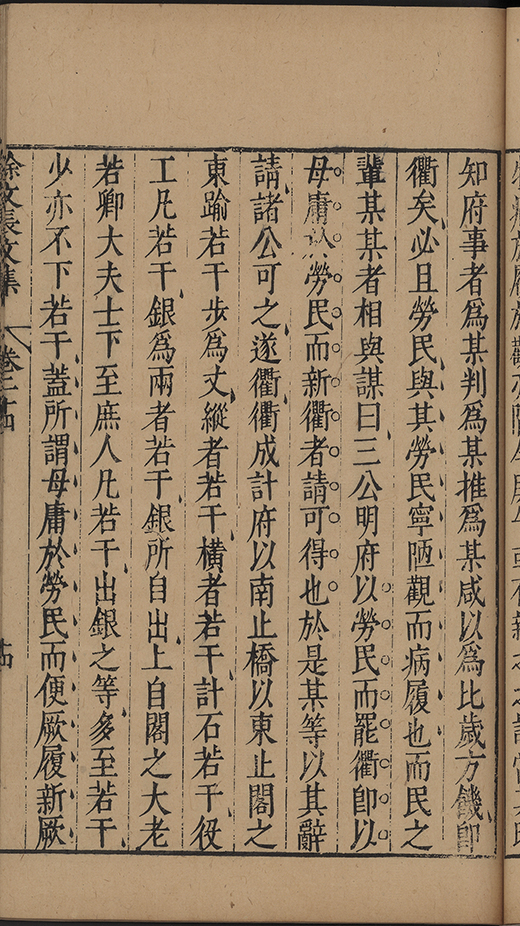 知府事者為某判為某推為某咸以為比歲方饑卽
衢矣必且勞民與其勞民寧陋觀而病履也而民之
輩某某者相與謀曰三公明府以勞民而罷衢卽以
毋庸於勞民而新衢者請可得也於是某等以其辭
請諸公可之遂衢衢成計府以南止橋以東止閣之
東踰若干步為丈縱者若干橫者若干計石若干役
工凡若干銀為兩者若干銀所自出上自閣之大老
若卿大夫士下至庶人凡若干出銀之等多至若干
少亦不下若干蓋所謂毋庸於勞民而便厥履新厥
徐文長文集 卷二十四